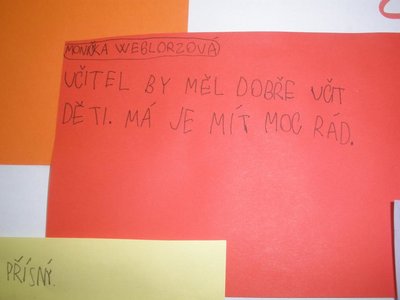 MONIKA WEBLORZOVÁ
UČITEL BY MĚL DOBŘE UČIT
DĚTI. MÁ JE MÍT MOC RÁD.
PŘÍSNÝ.